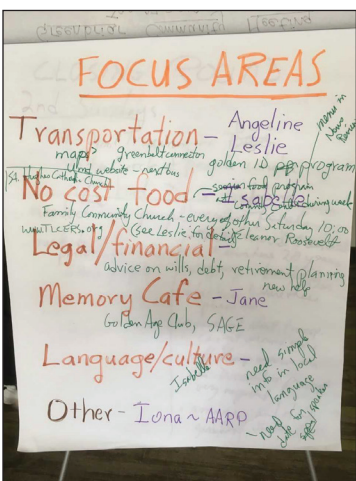 Greenbriar Community Meeting
FOCUS AREAS
Transportation - Angeline
Leslie
maps greenbelt connection
golden ID program
website - nextbus
menu in
News
Review
St. Hughes Catholic Church
No cost food - Isabelle
food program
during week
Family Community Church - every other Saturday 10:00
www.TLCERS.org (see Leslie for details) Eleanor Roosevelt
Legal/financial -
advice on wills, debt, retirement planning
new help
Memory Cafe - Jane
Golden Age Club, SAGE
Language/culture -
Isabella
need simple
info in local
language
Other - Iona ~ AARP
- need
date for